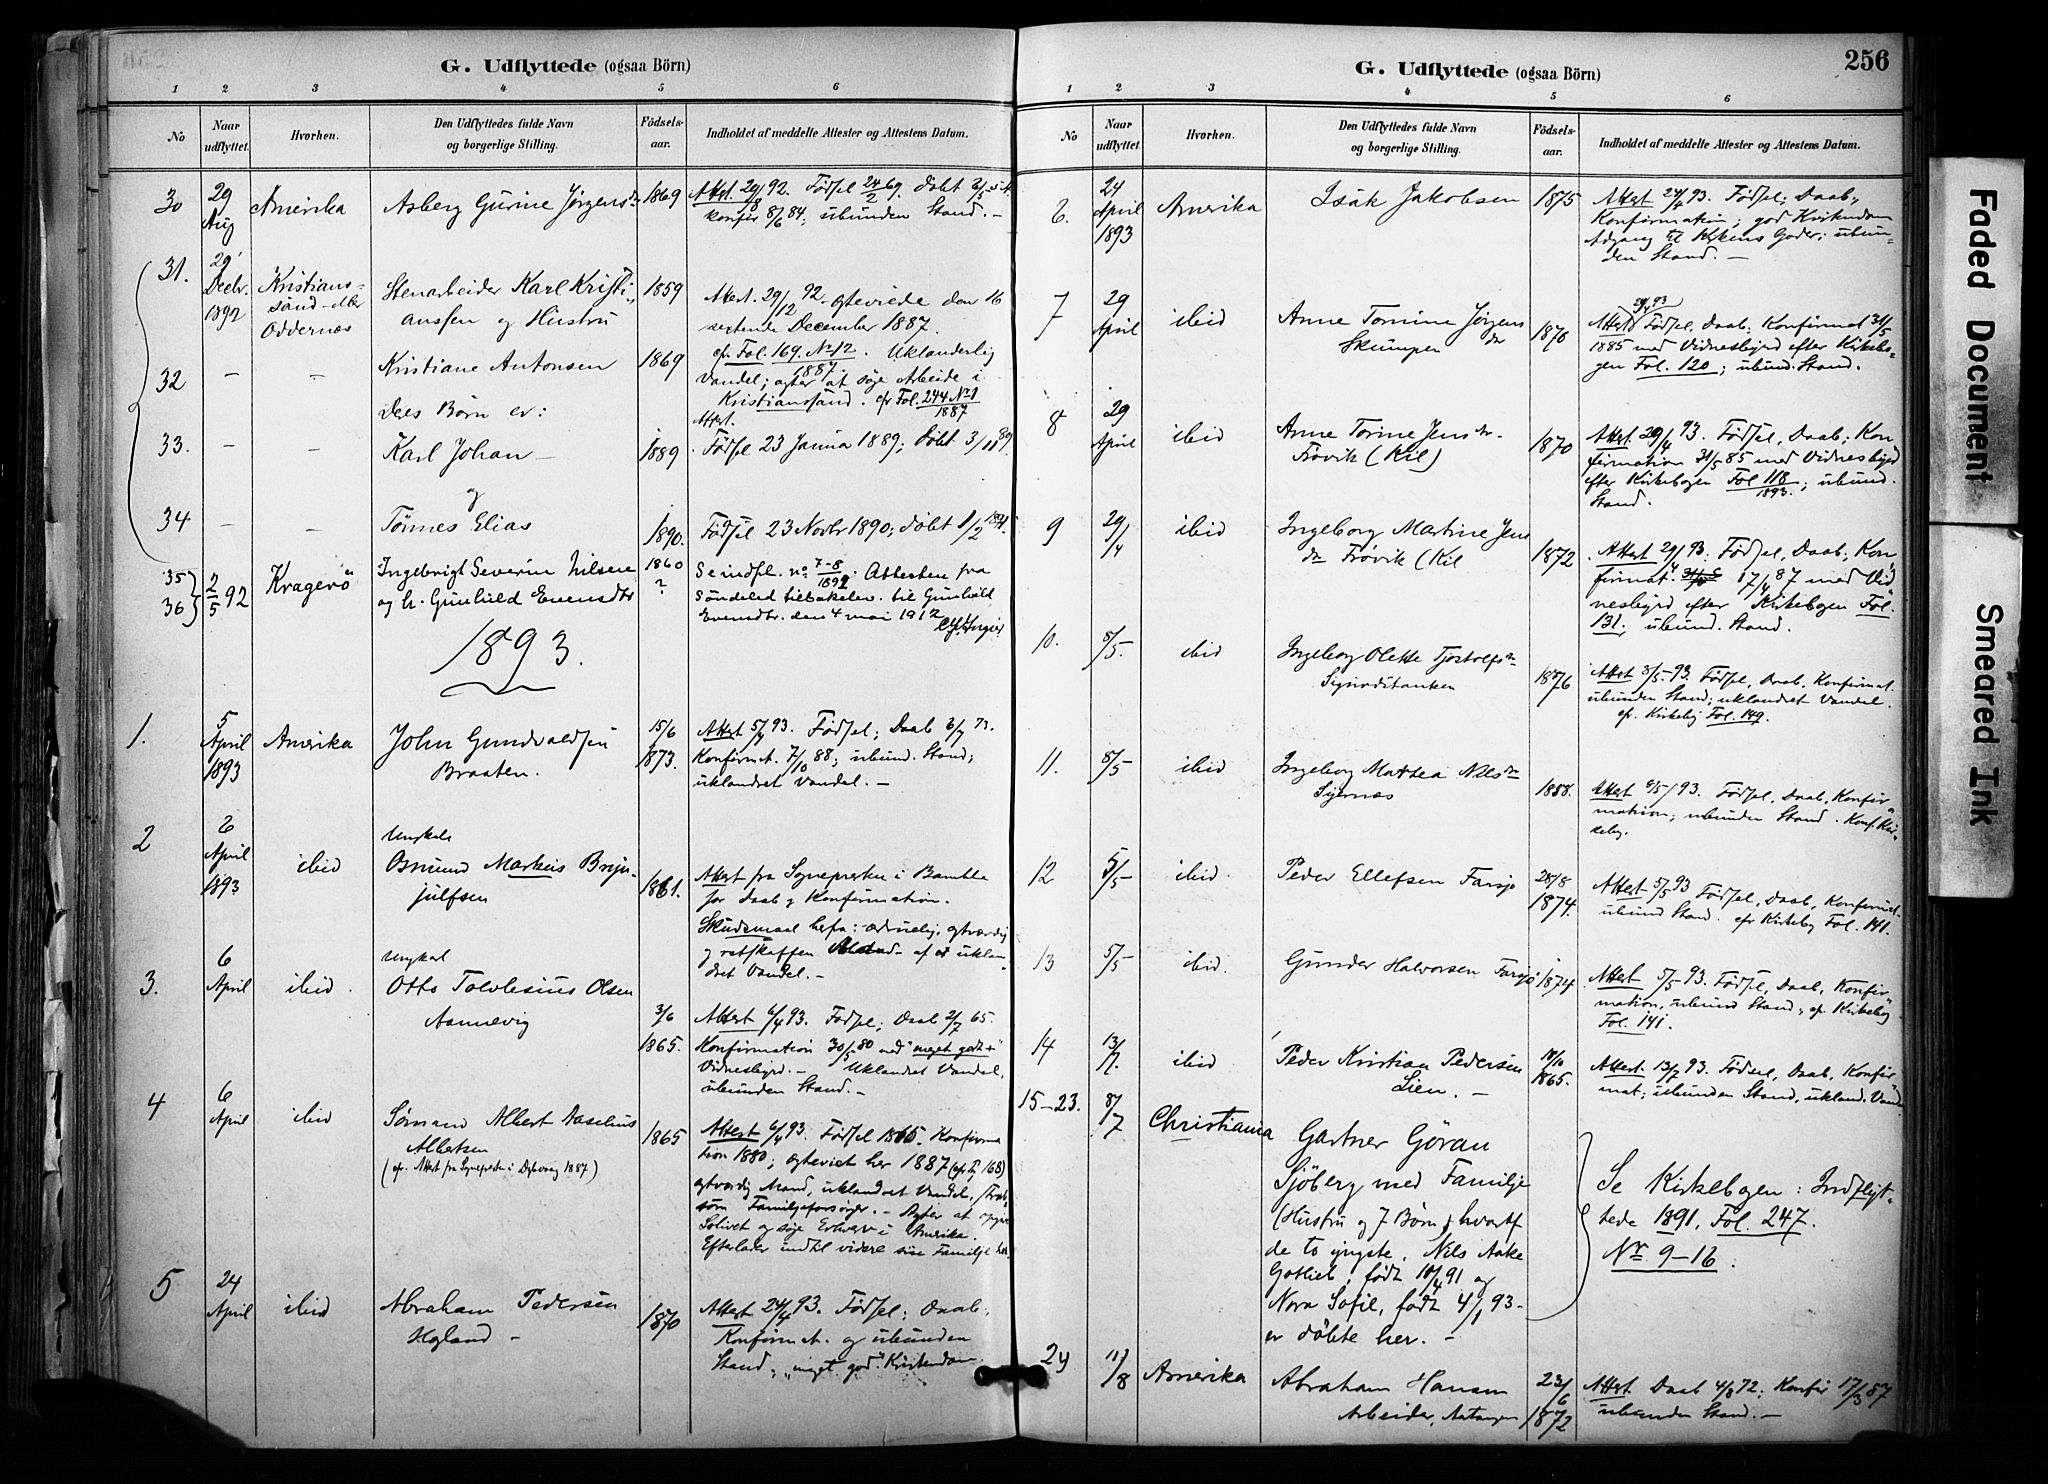 G. Udflyttede (ogsaa Börn)
1 2 3 4 5 6
No Naar udflyttet. Hvorhen. Den Udflyttedes fulde Navn og borgerlige Stilling. Fødsels-aar. Indholdet af meddelte Attester og Attestens Datum.
30 29 Aug Amerika Asberg Gurine Jørgensdr 1869 Attest 29/8 92. Fødsel 24/2 69. Døbt
konfir 8/6 84; ubunden Stand. –
31. 29 Decbr. 1892 Kristianssand eller Oddernæs Stenarbeider Karl Kristi-
anssen og Hustru 1859 Attest. 29/12 92 – egteviede den 16
sextende December 1887.
cfr Fol. 169. No 12 1887. Uklanderlig
32 – – Kristiane Antonsen 1869 Vandel; agter at søge Arbeide i
Kristianssand. cfr Fol. 244 No 1 1887
Deres Børn er:
Attest.
33. – – Karl Johan – 1889 Fødsel 23 Janua 1889; døbt 3/11 89.
og
34 – – Tönnes Elias 1890. Fødsel 23 Novbr 1890; døbt 1/2 1891.
35 36 } 2/5 92 Kragerö Ingebrigt Severin Nilsen
og h. Gunhild Evensdtr 1860 ? Se indfl. no 7-8 1892. Attesten fra
Söndeled tilbakelev. til Gunhild
Evensdtr. den 4 mai 1912
1893.
1. 5 April 1893 Amerika John Gundvaldsen
Braaten. 15/6 1873. Attest 5/4 93. Fødsel; Daab 6/7 73.
Konfirmt. 7/10 88; ubund. Stand;
uklandret Vandel. –
2 6 April 1893 ibid Ungkarl
Osmund Markus Bryn-
julfsen 1861. Attest fra Sognepresten i Bamble
for Daab og Konfirmation.
Skudsmaal herfra: ædruelig, agtværdig
og retskaffen Mand – af et uklan-
dret Vandel. –
3. 6 April ibid. Ungkarl
Otto Tobolesius Olsen
Aanevig 3/6 1865. Attest 6/4 93. Fødsel; Daab 2/7 65.
Konfirmation 30/5 80 med "meget godt +"
Vidnesbyrd. – Uklandret Vandel,
ubunden Stand. –
4 6 April ibid Sørnand Albert Aaselius
Albetsen
(cfr. Attest fra Sognepresten i Dybvaag 1887) 1865 Attest 6/4 93. Fødsel 1865. Konfirma
tion 1880; egteviet her 1887 (cfr Fol 168)
agtværdig Mand, uklandret Vandel,
som Familjeforsørger. – Agter at opgive
Solivet og søge Erhverv i Amerika.
Efterlader indtil videre sin Familje her.
5 24 April ibid Abraham Pedersen
Hegland – 1870 Attest 24/4 93. Fødsel; Daab;
Konfirmat. og ubunden
Stand; "meget god" Kristendom.
256
G. Udflyttede (ogsaa Börn)
1 2 3 4 5 6
No Naar udflyttet. Hvorhen. Den Udflyttedes fulde Navn og borgerlige Stilling. Fødsels-aar. Indholdet af meddelte Attester og Attestens Datum.
6. 24 April 1893 Amerika Isak Jakobsen 1875 Attest 24/4 93. Fødsel; Daab,
Konfirmation; god Kristendom
Adgang til Kirkens Goder; ubun-
den Stand. –
7 29 April ibid Anne Tomine Jørgens dr
Skumpen 1870 Attest 29/4 93 Fødsel, Daab, Konfirmat 31/5
1885 med Vidnesbyrd efter Kirkebo-
gen Fol. 120; ubund. Stand.
8 29 April ibid Anne Torine Jensdr.
Frövik (Kil) 1870 Attest. 29/4 93. Fødsel, Daab; Kon-
firmation 31/5 85 med Vidnesbyrd
efter Kirkebogen Fol 118 1893.; ubund.
Stand.
9 29/4 ibid Ingeborg Martine Jens
dr Frövik (Kil 1872 Attest 29/4 93. Fødsel, Daab; Kon-
firmat. 17/4 87 med Vid
nesbyrd efter Kirkebogen Fol.
131; ubund. Stand.
10. 5/5– ibid Ingeborg Olette Tjostolfsdr
Signodstanken 1876 Attest 5/5–93. Fødsel, Daab, Konfirmat.
ubunden Stand; uklandret Vandel.
cfr. Kirkebog Fol. 149.
11. 5/5– ibid Ingeborg Mathea Nilsdr
Sjernæs 1858. Attest 5/5/93. Fødsel, Daab, Konfir
mation; ubunden Stand. Konf. Kir-
kebog.
12 5/5– ibid. Peder Ellefsen Farsjø 28/8 1874. Attest 5/5 93 Fødsel, Daab, Konfirmat.
ubund Stand. cfr Kirkebog Fol. 141.
13 5/5– ibid. Gunder Halvorsen Farsjø 1874 Attest 5/5–93. Fødsel, Daab, Konfir-
mation, ubund Stand, cfr. Kirkebog
Fol. 141.
14 13/7. ibid Peder Kristian Pedersen
Lien. – 18/10 1865. Attest. 13/7 93. Fødsel, Daab, Konfir
mat; ubunden Stand, ukland. Vandel
15–23. 8/7 Christiania Gartner Göran
Sjöberg med Familje
(Hustru og 7 Børn) hvoraf
de to yngste, Nils Aake
Gotlieb, født 10/4 91 og
Nora Sofie, født 4/1 93 –
er døbte her. –
Se Kirkebogen: Indflyt-
tede 1891, Fol. 247.
Nr 9–16.
24 11/8 Amerika Abraham Hansen
Arbeider, 23/6 1872 Attest Daab 4/8 72; Konfir 17/3 87
ubunden Stand. –
Faded Document
Smeared Ink